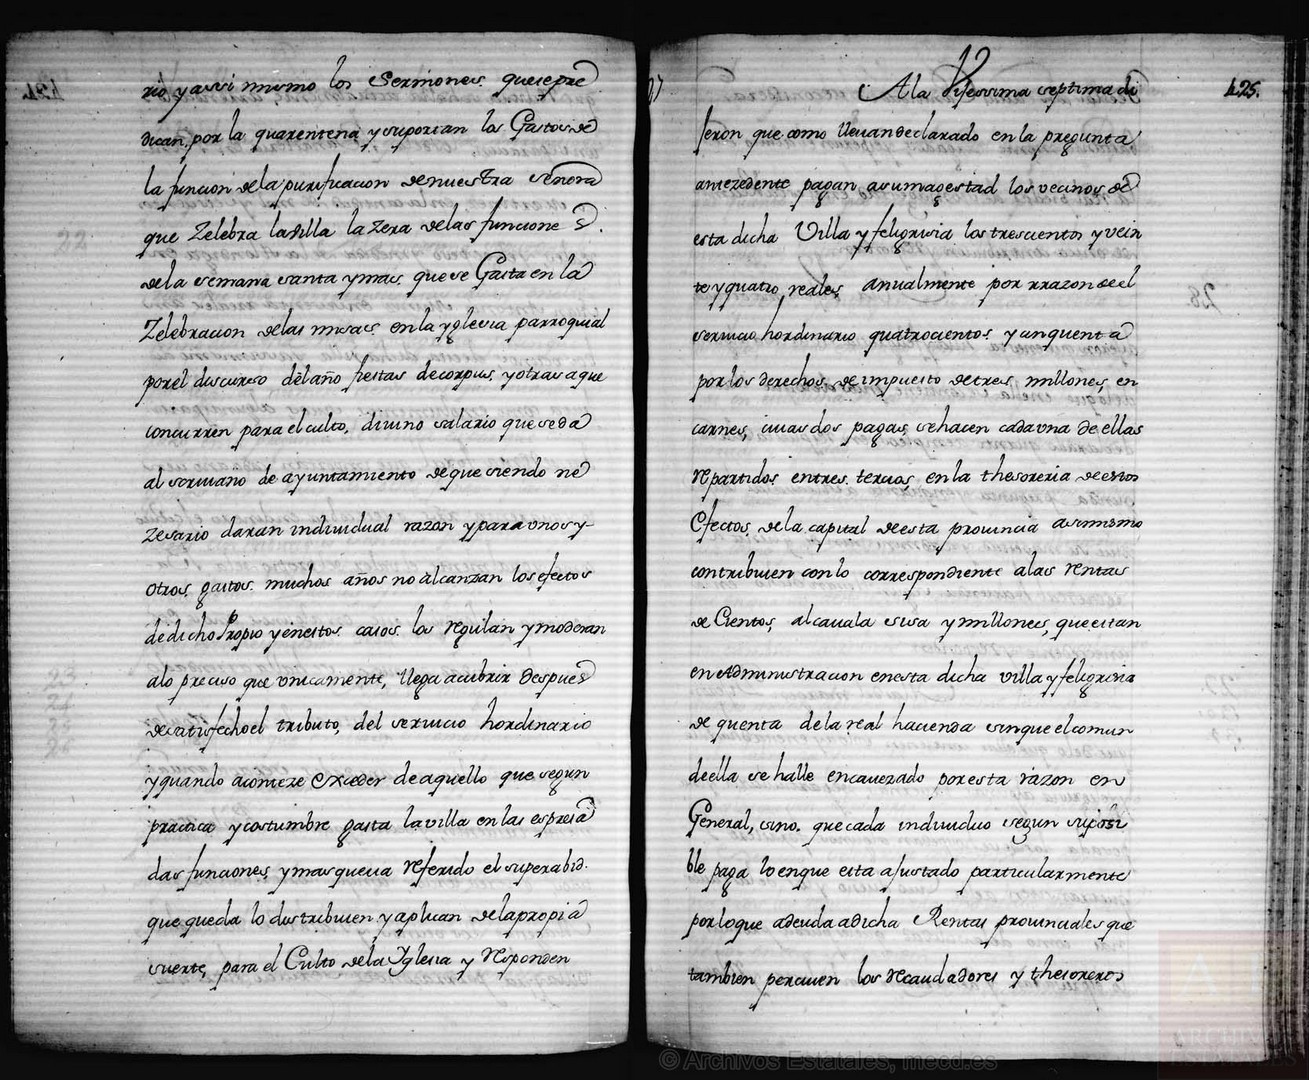 rio y assi mismo los Sermones que se pre
dican, por la quarentena y suportan los Gastos de
la funcion de la purificacion de nuestra señora
que Zelebra la villa la Zera de las funcione s.
de la semana santa y mas que se Gasta en la
Zelebracion de las misas en la yglesia parroquial
por el discurso del año fiestas de corpus y otras a que
concurren para el culto, divino salario que se da
al scrivano de ayuntamiento de que siendo ne
zesario daran individual razon y para unos y
otros gastos muchos años no alcanzan los efectos
de dicho Propio y en estos casos los regulan y moderan
a lo preciso que unicamente, llega a cubrir despues
de satisfecho el tributo, del servicio hordinario
y quando acomeze exceder de aquello que segun
practica y costumbre gasta la villa en las espresa
das funciones y mas que va referido el superabid.
que queda lo distribuien y aplican de la propia
suerte, para el Culto de la Yglesia y responden
27)
12
A la Vijessima septima di
425.
jeron que como llevan declarado en la pregunta
antezedente pagan a su magestad los vecinos de
esta dicha Villa y feligrisia los trescientos y vein
te y quatro reales anualmente por rrazon de el
servicio hordinario quatrocientos y cinquenta
por los derechos de impuesto de tres millones en
carnes, cuias dos pagas se hacen cada una de ellas
repartidos en tres tercios en la thesoreria de estos
Efectos de la capital de esta provincia asimismo
contribuien con lo correspondiente a las rentas
de Cientos, alcavala sisa y millones, que estan
en Administracion en esta dicha villa y feligrisia
de quenta de la real hacienda sin que el comun
de ella se halle encavezado por esta razon en
General, sino que cada individuo segun su posi
ble paga lo en que esta ajustado particularmente
por lo que adeuda a dicha Rentas provinciales que
tambien perciven los recaudadores y thesoreros
© Archivos Estatales, mecd.es